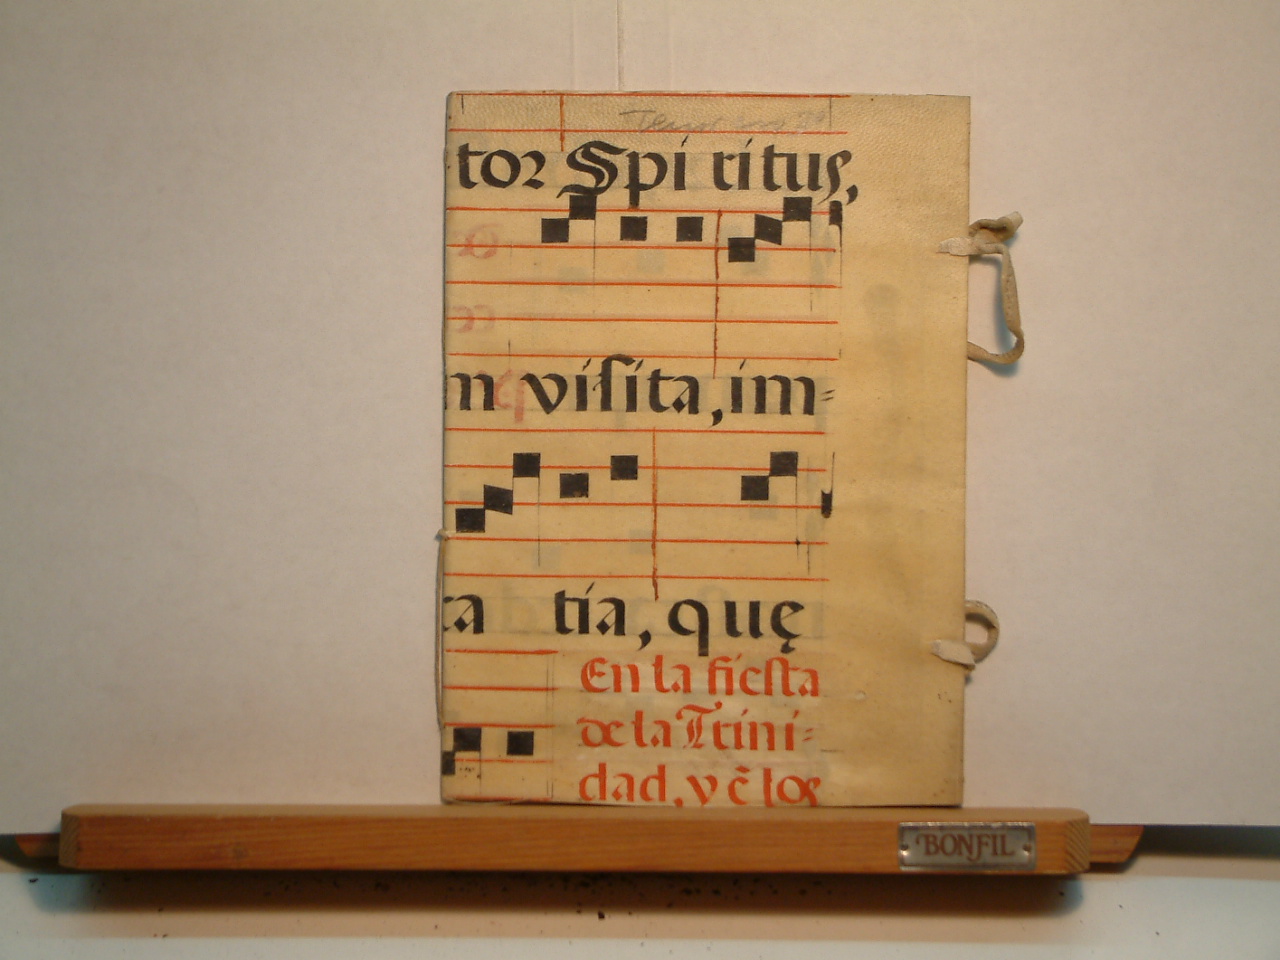 tor Spi ritus,
m visita, im=
ta tia, quę
En la fiesta
de la Trini=
dad, y ẽ los
BONFIL